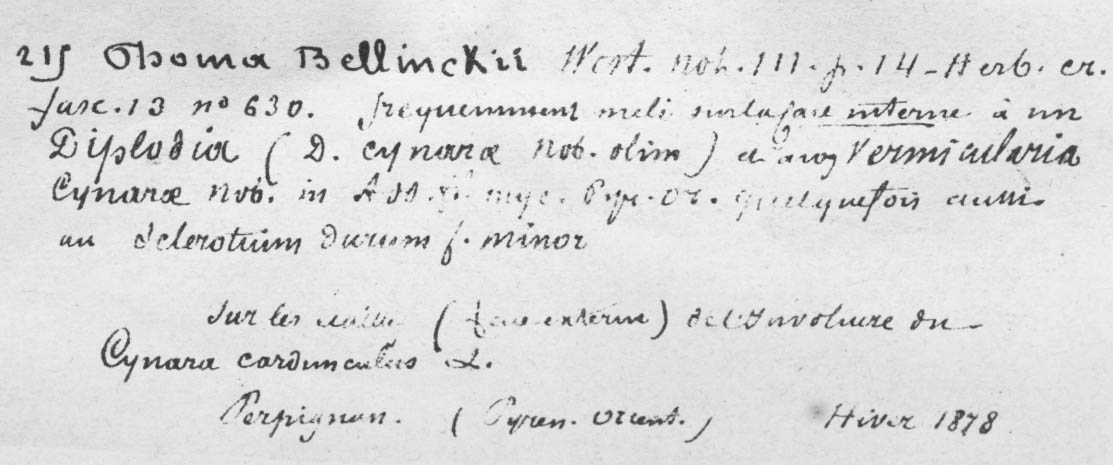 215 Phoma Bellinckii West. not. III. p. 14 - Herb. cr.
fasc. 13 nº 630. frequemment melé sur la face interne à un
Diplodia ( D. cynaræ Nob. olim ) et au Vermicularia
Cynaræ Nob. in Add. fl. myc. Pyr. Or. quelquefois aussi
au Sclerotium durum f. minor
Sur les ( face externe ) de l'Involucre du
Cynara cardunculus L.
Perpignan. ( Pyren. Orient. ) Hiver 1878